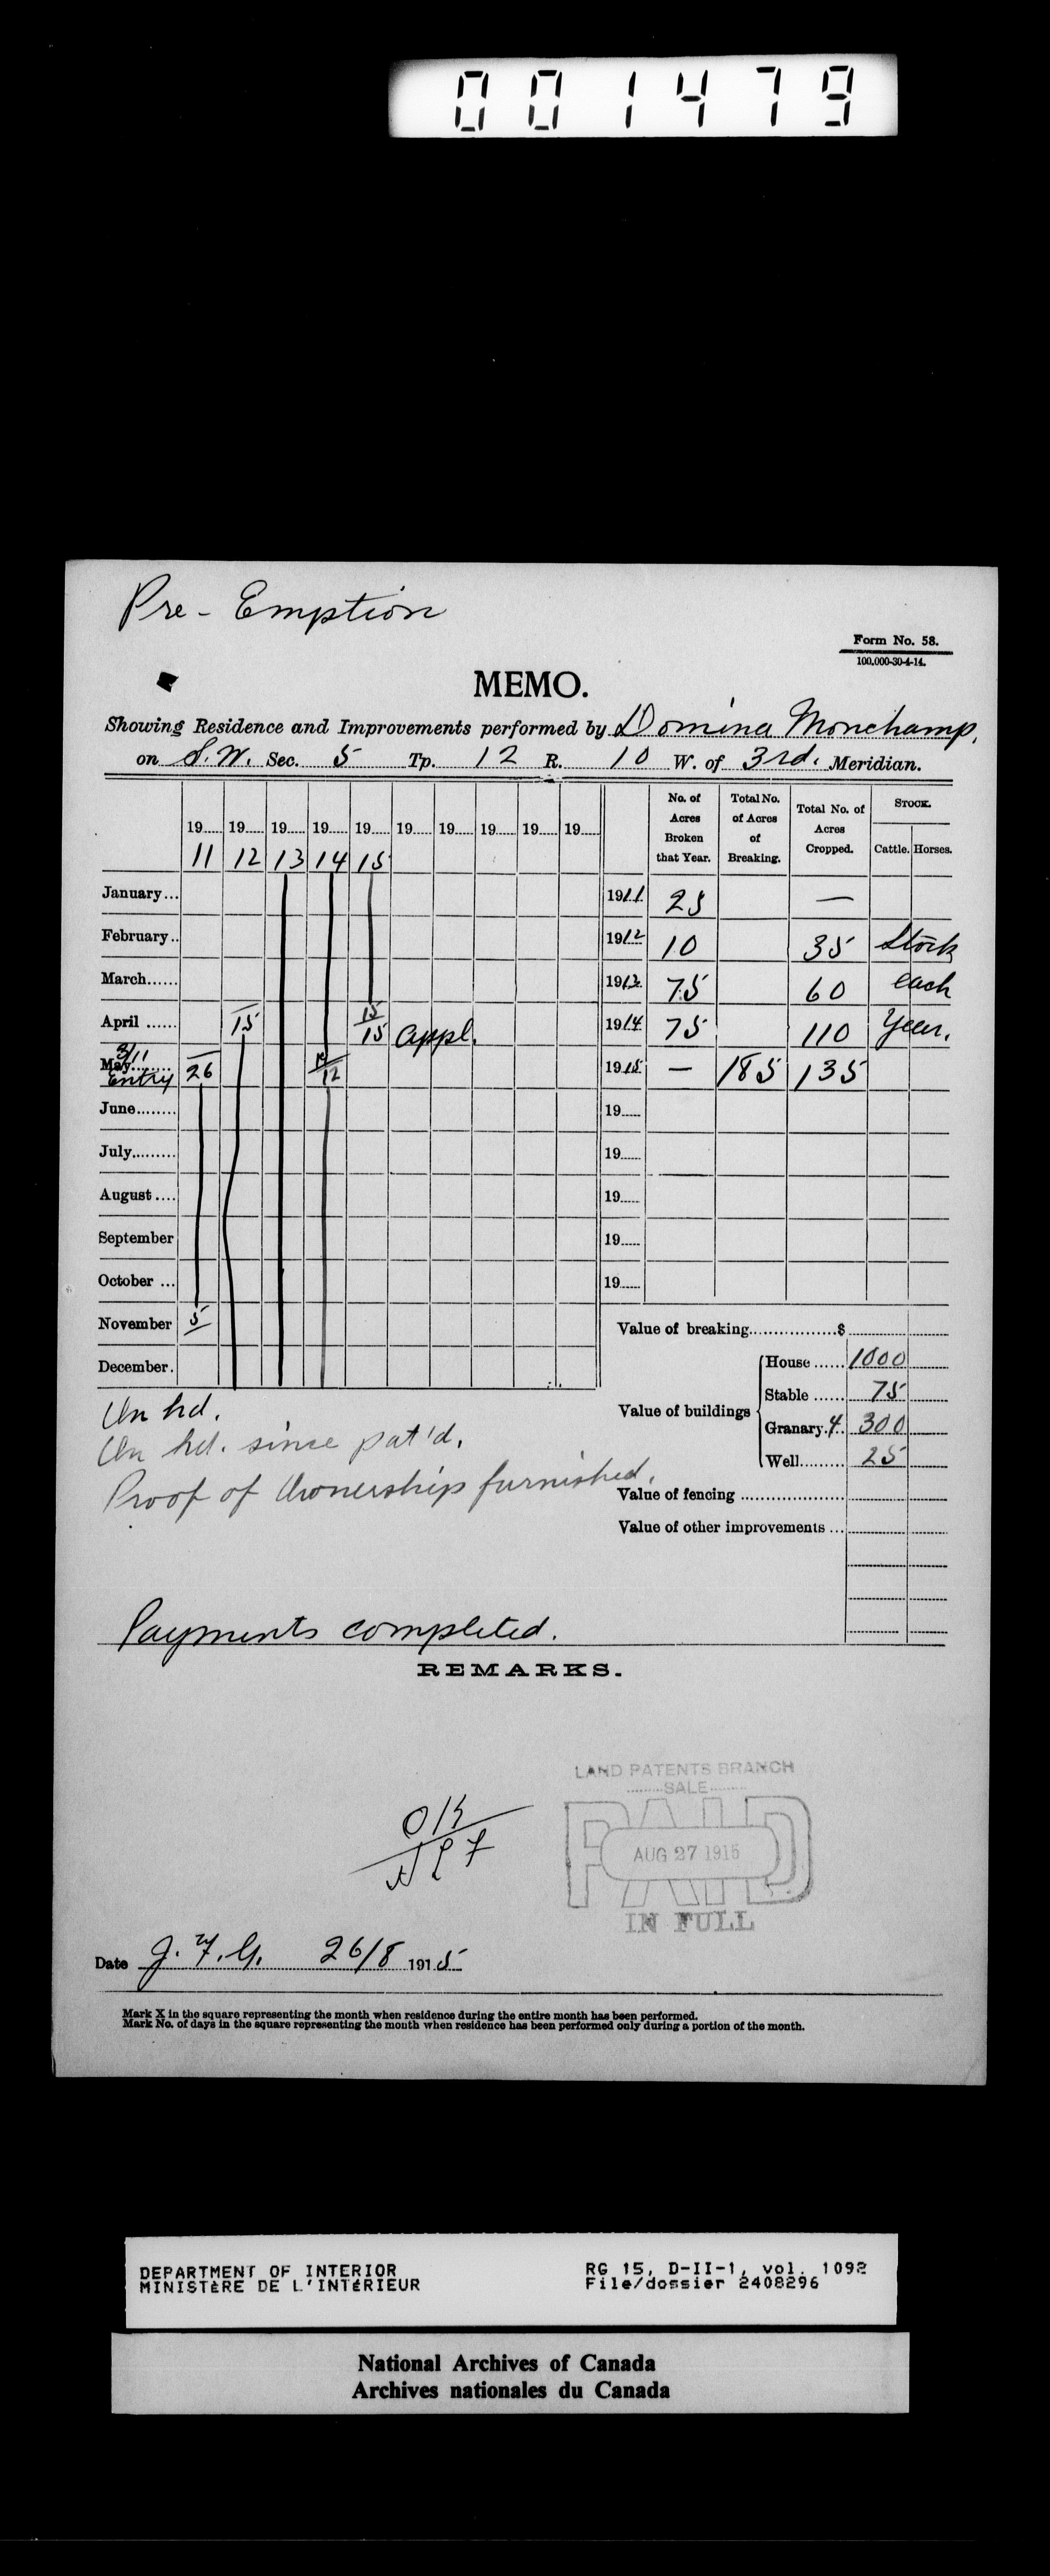 001479
Pre-Emption
Form No. 58.
100,000-30-4-14.
MEMO.
Showing Residence and Improvements performed by Domina Monchamp,
on S.W. Sec. 5 Tp. 12 R. 10 W. of 3rd. Meridian.
19 11 19 12 19 13 19 14 19 15 19 19 19 19 19
No. of Acres Broken that Year. Total No. of Acres of Breaking. Total No. of Acres Cropped. STOCK. Cattle. Horses.
January... 1911 25 —
February.. 1912 10 35 Stock
March...... 1913 75 60 each
April ...... 15 15 15 appl. 1914 75 110 Year.
May........ 3/11 Entry 26 12 1915 — 185 135
June........ 19......
July......... 19......
August.... 19......
September 19......
October ... 19......
November 5
December.
Value of breaking.................$
Value of buildings
House ...... 1000
Stable ...... 75
Granary. 4. 300
Well......... 25
Value of fencing
Value of other improvements ...
On hd.
On hd. since pat'd.
Proof of Ownership furnished.
Payments completed.
REMARKS.
OK
LAND PATENTS BRANCH
SALE
PAID
AUG 27 1915
IN FULL
Date J.F.G. 26/8 1915
Mark X in the square representing the month when residence during the entire month has been performed.
Mark No. of days in the square representing the month when residence has been performed only during a portion of the month.
DEPARTMENT OF INTERIOR
MINISTÈRE DE L'INTÉRIEUR
RG 15, D-II-1, vol. 1092
File/dossier 2408296
National Archives of Canada
Archives nationales du Canada